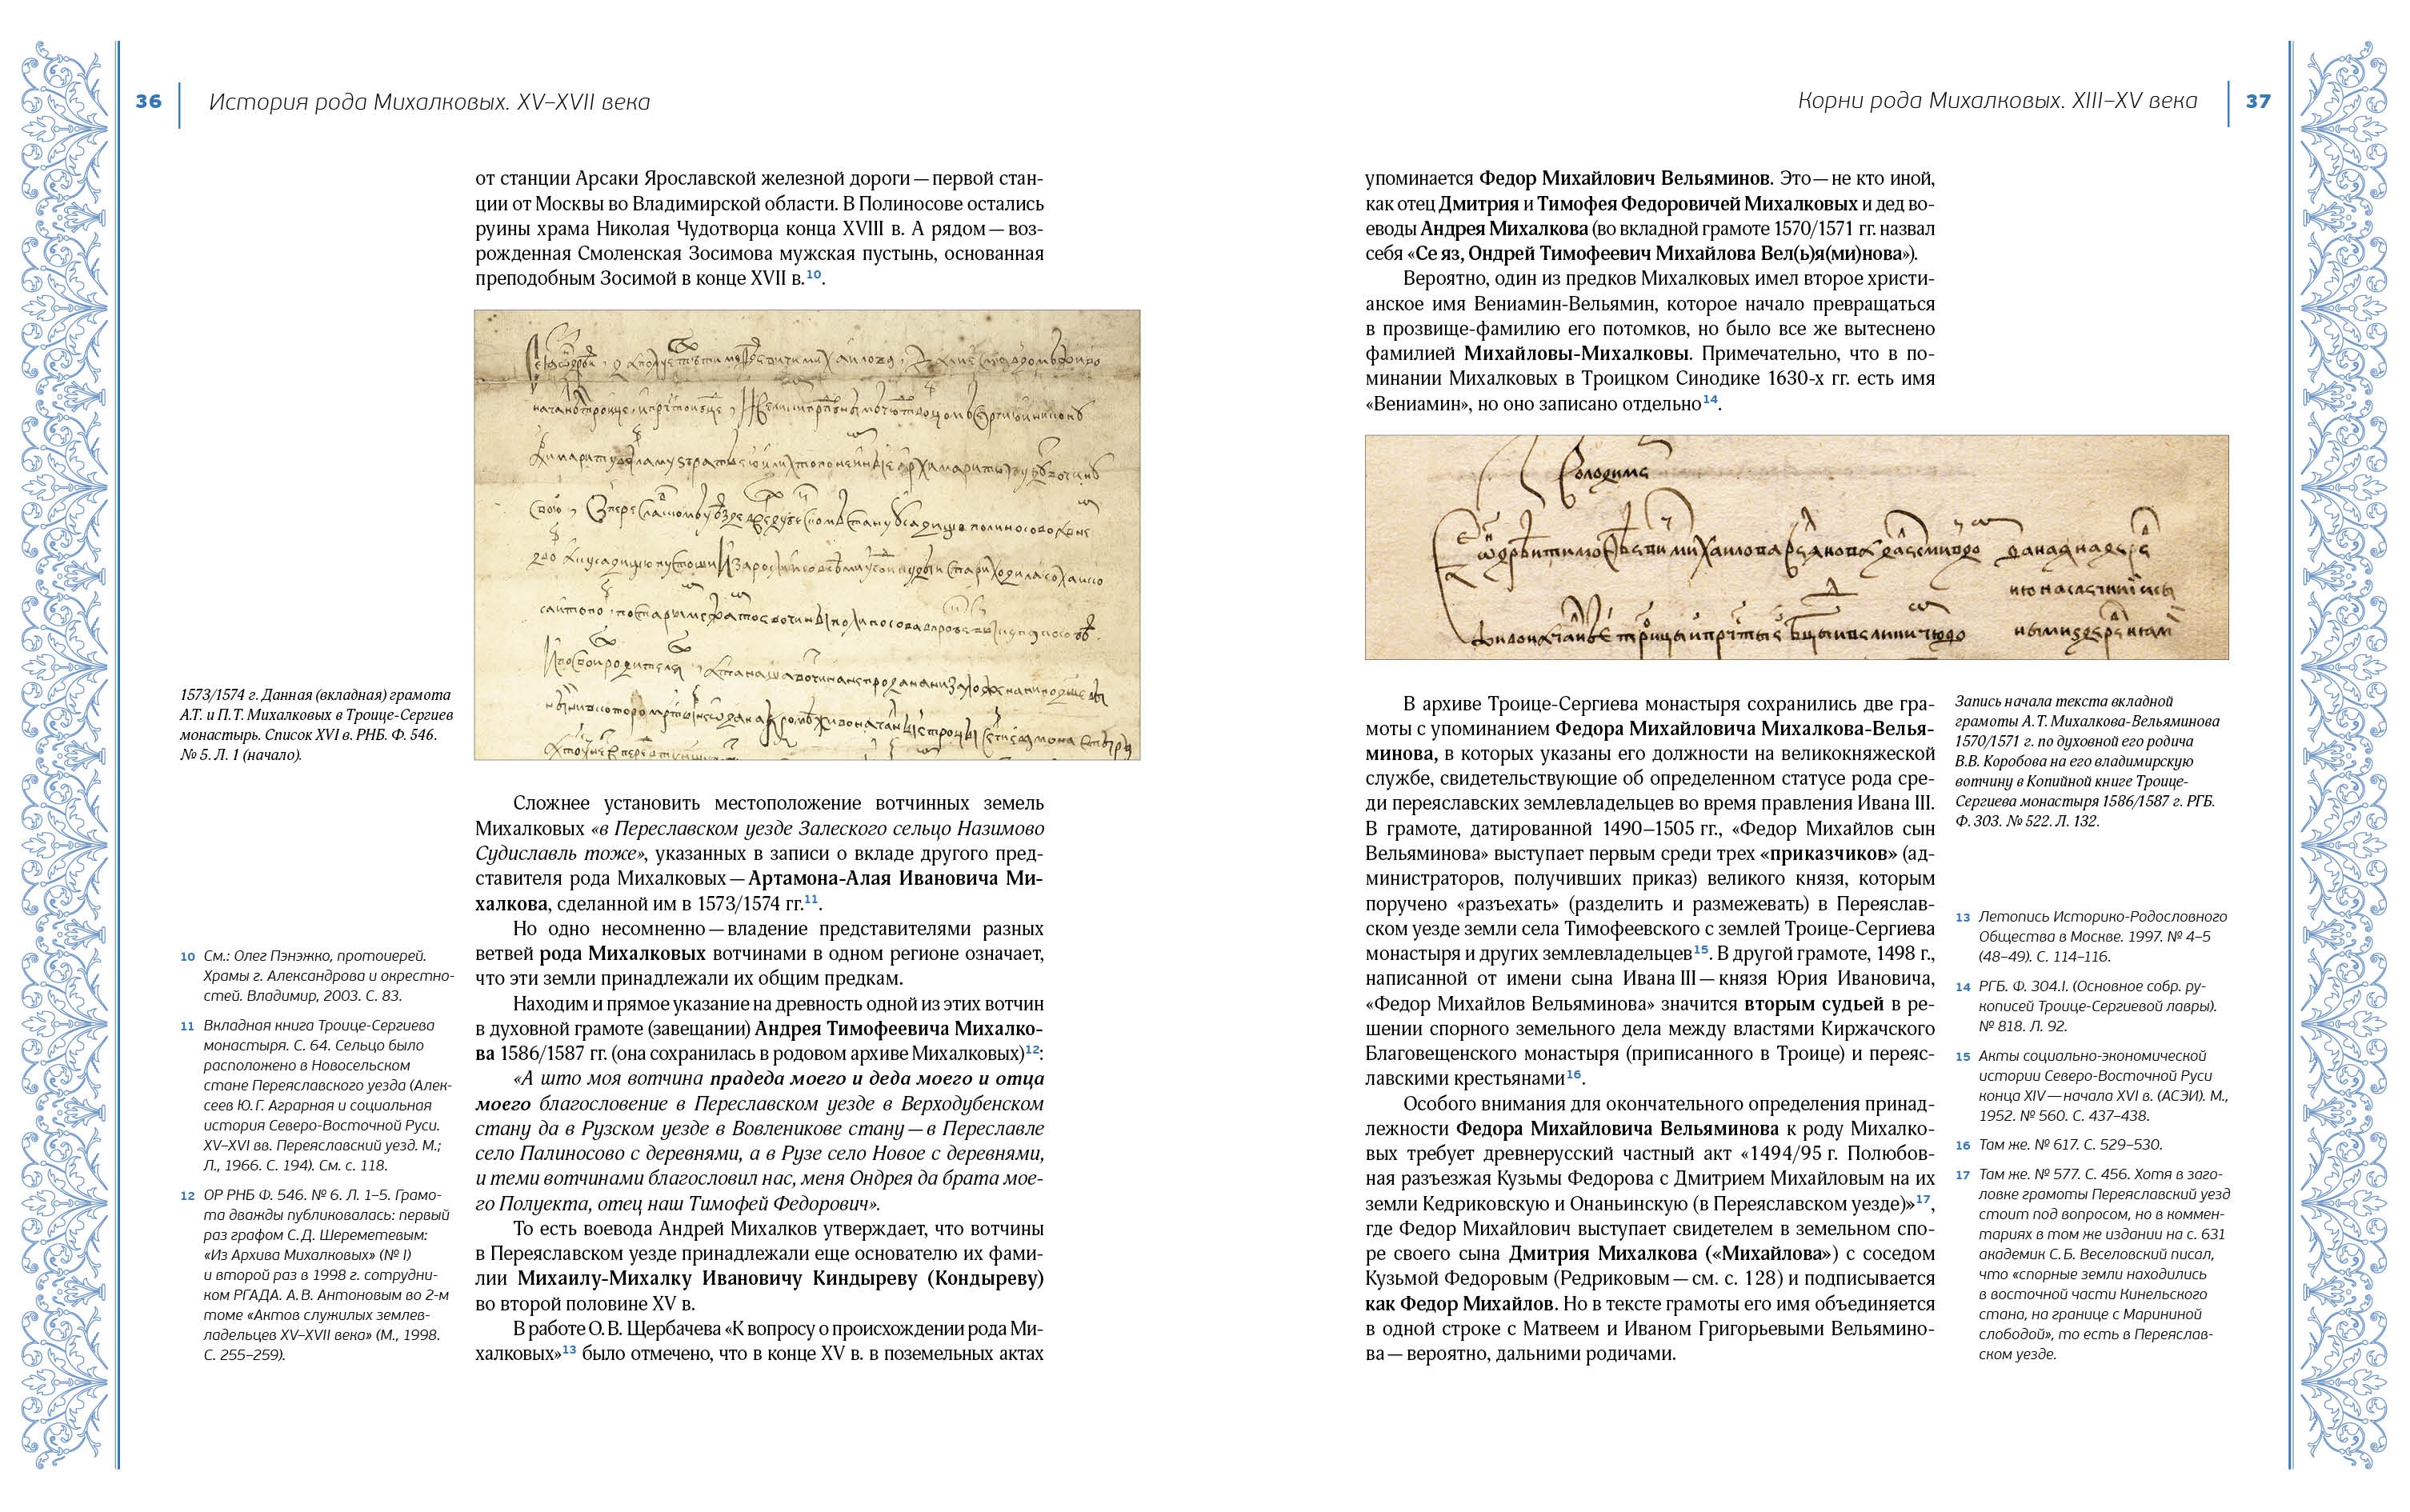 36
История рода Михалковых. XV–XVII века
от станции Арсаки Ярославской железной дороги — первой стан-
ции от Москвы во Владимирской области. В Полиносове остались
руины храма Николая Чудотворца конца XVIII в. А рядом — воз-
рожденная Смоленская Зосимова мужская пустынь, основанная
преподобным Зосимой в конце XVII в.10.
1573/1574 г. Данная (вкладная) грамота
А.Т. и П.Т. Михалковых в Троице-Сергиев
монастырь. Список XVI в. РНБ. Ф. 546.
№ 5. Л. 1 (начало).
Сложнее установить местоположение вотчинных земель
Михалковых «в Переславском уезде Залеского сельцо Назимово
Судиславль тоже», указанных в записи о вкладе другого пред-
ставителя рода Михалковых — Артамона-Алая Ивановича Ми-
халкова, сделанной им в 1573/1574 гг.11.
Но одно несомненно — владение представителями разных
ветвей рода Михалковых вотчинами в одном регионе означает,
что эти земли принадлежали их общим предкам.
Находим и прямое указание на древность одной из этих вотчин
в духовной грамоте (завещании) Андрея Тимофеевича Михалко-
ва 1586/1587 гг. (она сохранилась в родовом архиве Михалковых)12:
«А што моя вотчина прадеда моего и деда моего и отца
моего благословение в Переславском уезде в Верходубенском
стану да в Рузском уезде в Вовленикове стану — в Переславле
село Палиносово с деревнями, а в Рузе село Новое с деревнями,
и теми вотчинами благословил нас, меня Ондрея да брата мое-
го Полуекта, отец наш Тимофей Федорович».
То есть воевода Андрей Михалков утверждает, что вотчины
в Переяславском уезде принадлежали еще основателю их фами-
лии Михаилу-Михалку Ивановичу Киндыреву (Кондыреву)
во второй половине XV в.
В работе О.В. Щербачева «К вопросу о происхождении рода Ми-
халковых»13 было отмечено, что в конце XV в. в поземельных актах
10 См.: Олег Пэнэжко, протоиерей.
Храмы г. Александрова и окрестно-
стей. Владимир, 2003. С. 83.
11 Вкладная книга Троице-Сергиева
монастыря. С. 64. Сельцо было
расположено в Новосельском
стане Переяславского уезда (Алек-
сеев Ю.Г. Аграрная и социальная
история Северо-Восточной Руси.
XV–XVI вв. Переяславский уезд. М.;
Л., 1966. С. 194). См. с. 118.
12 ОР РНБ Ф. 546. № 6. Л. 1–5. Грамо-
та дважды публиковалась: первый
раз графом С.Д. Шереметевым:
«Из Архива Михалковых» (№ I)
и второй раз в 1998 г. сотрудни-
ком РГАДА. А.В. Антоновым во 2-м
томе «Актов служилых землев-
ладельцев XV–XVII века» (М., 1998.
С. 255–259).
Корни рода Михалковых. XIII–XV века
37
упоминается Федор Михайлович Вельяминов. Это — не кто иной,
как отец Дмитрия и Тимофея Федоровичей Михалковых и дед во-
еводы Андрея Михалкова (во вкладной грамоте 1570/1571 гг. назвал
себя «Се яз, Ондрей Тимофеевич Михайлова Вел(ь)я(ми)нова»).
Вероятно, один из предков Михалковых имел второе христи-
анское имя Вениамин-Вельямин, которое начало превращаться
в прозвище-фамилию его потомков, но было все же вытеснено
фамилией Михайловы-Михалковы. Примечательно, что в по-
минании Михалковых в Троицком Синодике 1630-х гг. есть имя
«Вениамин», но оно записано отдельно14.
В архиве Троице-Сергиева монастыря сохранились две гра-
моты с упоминанием Федора Михайловича Михалкова-Велья-
минова, в которых указаны его должности на великокняжеской
службе, свидетельствующие об определенном статусе рода сре-
ди переяславских землевладельцев во время правления Ивана III.
В грамоте, датированной 1490–1505 гг., «Федор Михайлов сын
Вельяминова» выступает первым среди трех «приказчиков» (ад-
министраторов, получивших приказ) великого князя, которым
поручено «разъехать» (разделить и размежевать) в Переяслав-
ском уезде земли села Тимофеевского с землей Троице-Сергиева
монастыря и других землевладельцев15. В другой грамоте, 1498 г.,
написанной от имени сына Ивана III — князя Юрия Ивановича,
«Федор Михайлов Вельяминова» значится вторым судьей в ре-
шении спорного земельного дела между властями Киржачского
Благовещенского монастыря (приписанного в Троице) и переяс-
лавскими крестьянами16.
Особого внимания для окончательного определения принад-
лежности Федора Михайловича Вельяминова к роду Михалко-
вых требует древнерусский частный акт «1494/95 г. Полюбов-
ная разъезжая Кузьмы Федорова с Дмитрием Михайловым на их
земли Кедриковскую и Онаньинскую (в Переяславском уезде)»17,
где Федор Михайлович выступает свидетелем в земельном спо-
ре своего сына Дмитрия Михалкова («Михайлова») с соседом
Кузьмой Федоровым (Редриковым — см. с. 128) и подписывается
как Федор Михайлов. Но в тексте грамоты его имя объединяется
в одной строке с Матвеем и Иваном Григорьевыми Вельямино-
ва — вероятно, дальними родичами.
Запись начала текста вкладной
грамоты А.Т. Михалкова-Вельяминова
1570/1571 г. по духовной его родича
В.В. Коробова на его владимирскую
вотчину в Копийной книге Троице-
Сергиева монастыря 1586/1587 г. РГБ.
Ф. 303. № 522. Л. 132.
13 Летопись Историко-Родословного
Общества в Москве. 1997. № 4–5
(48–49). С. 114–116.
14 РГБ. Ф. 304.I. (Основное собр. ру-
кописей Троице-Сергиевой лавры).
№ 818. Л. 92.
15 Акты социально-экономической
истории Северо-Восточной Руси
конца XIV — начала XVI в. (АСЭИ). М.,
1952. № 560. С. 437–438.
16 Там же. № 617. С. 529–530.
17 Там же. № 577. С. 456. Хотя в заго-
ловке грамоты Переяславский уезд
стоит под вопросом, но в коммен-
тариях в том же издании на с. 631
академик С.Б. Веселовский писал,
что «спорные земли находились
в восточной части Кинельского
стана, на границе с Марининой
слободой», то есть в Переяслав-
ском уезде.